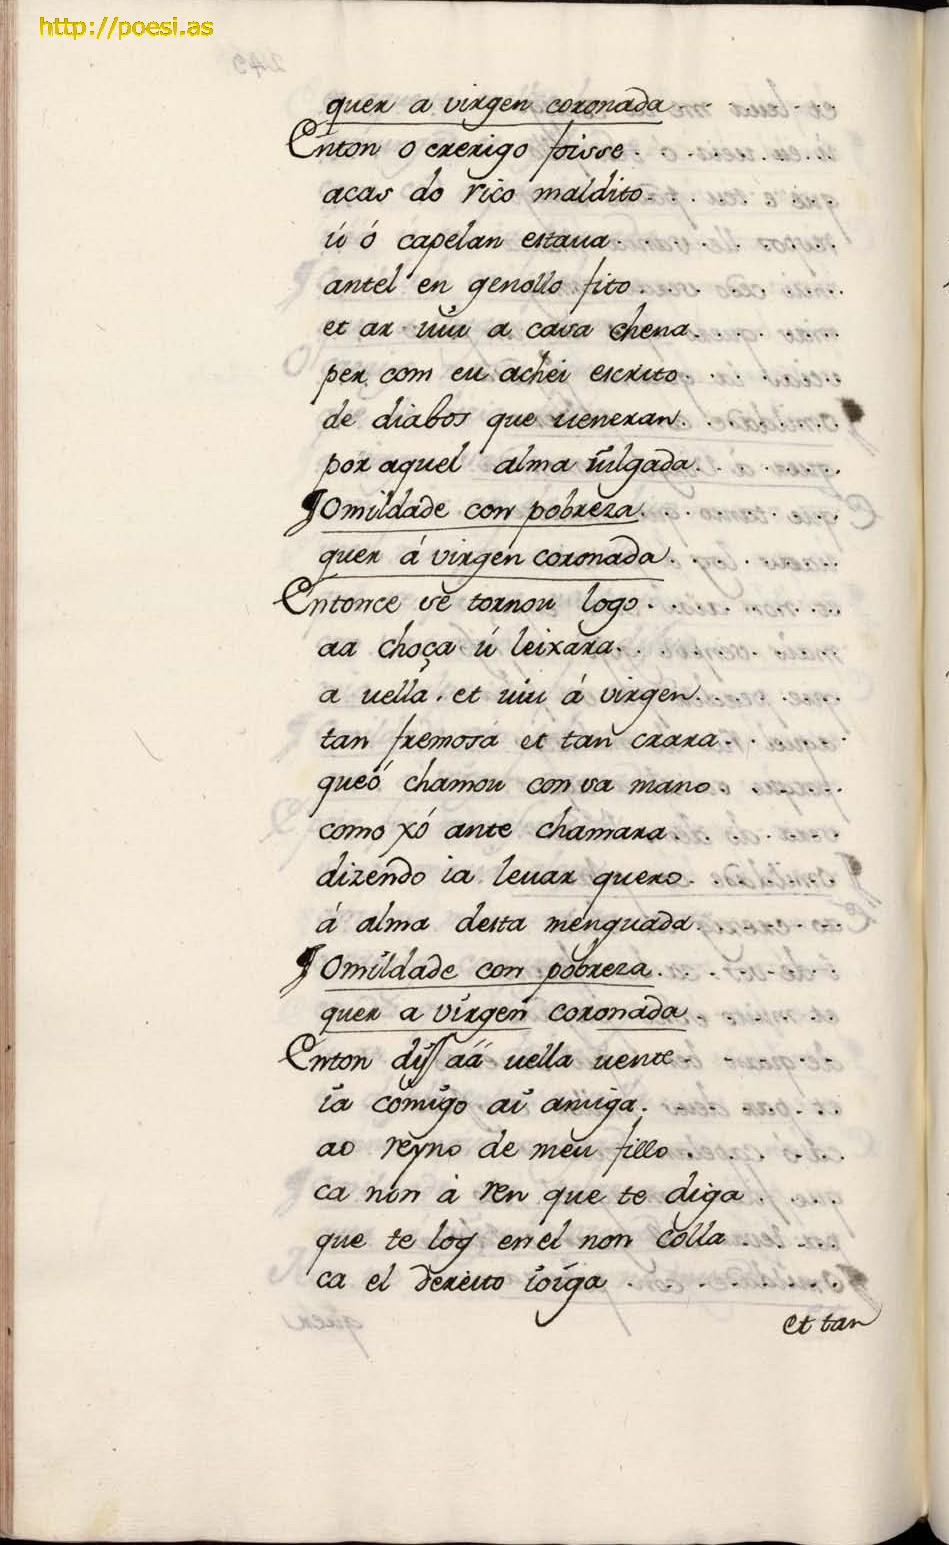 http://poesi.as
quer a virgen coronada
Enton o crerigo foisse
acas do rico maldito
ú ó capelan estaua
antel en genollo fito
et ar uiu a casa chena
per com eu achei escrito
de diabos que ueneran
por aquel alma iulgada
Omildade con pobreza
quer á virgen coronada
Entonce se tornou logo
aa choça ú leixara
a uella. et uiu á virgen
tan fremosa et tan crara
queó chamou con sa mano
como xó ante chamara
dizendo ia leuar quero
á alma desta menguada
Omildade con pobreza
quer a virgen coronada
Enton diss aá uella uente
ia comigo ai amiga.
ao reyno de meu fillo
ca non á ren que te diga
que te log en el non colla
ca el dereito ioiga
et tan